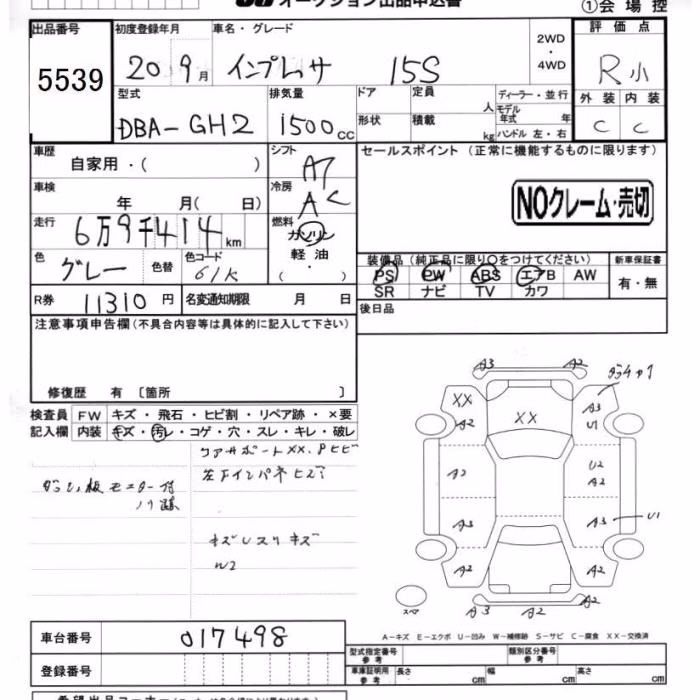 オークション出品申込書
①会場控
出品番号 初度登録年月 車名・グレード 2WD・4WD 評価点
5539 20 9月 インプレッサ 15S R小
外装 内装
C C
型式 排気量 ドア 定員 ディーラー・並行
人 モデル年式 年
DBA-GH2 1500cc 形状 積載 kg ハンドル 左・右
車歴 シフト セールスポイント (正常に機能するものに限ります)
自家用・( ) AT
車検 冷房 NOクレーム・売切
年 月( 日) AC
走行 燃料
6万9千414km ガソリン
軽油
( )
色 色替 色コード 装備品(純正品に限り○をつけてください) 新車保証書
グレー 61K PS PW ABS エアB AW 有・無
SR ナビ TV カワ
R券 11310円 名変通知期限 月 日 後日品
注意事項申告欄(不具合内容等は具体的に記入して下さい)
修復歴 有 〔箇所 〕
検査員 FW キズ・飛石・ヒビ割・リペア跡・×要
記入欄 内装 キズ・汚レ・コゲ・穴・スレ・キレ・破レ
コアサポートXX
左
モニター付
ノリ跡
キズ
W2
A3 A2
XX XX A3
A2 U1
A2 U2
A2
A3 A3 U1
A2 A2
スペア A3 A2 A2
A-キズ E-エクボ U-凹み W-補修跡 S-サビ C-腐食 XX-交換済
車台番号 017498
型式指定番号 参考 類別区分番号 参考
登録番号 車庫証明用 参考 長さ cm 幅 cm 高さ cm
希望出品コーナー